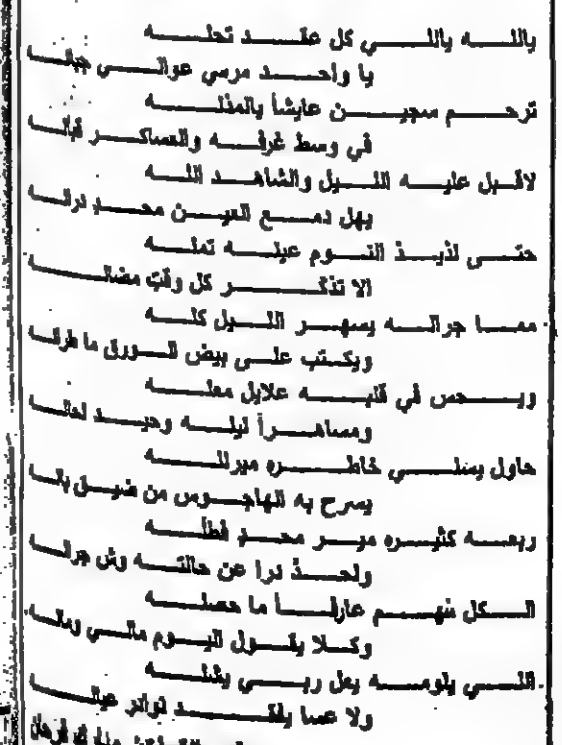 يالله ياللي كل عقد تحله
يا واحد مرسي عوالي جباله
ترحم سجين عايشاً بالمذله
في وسط غرفه والعساكر قباله
لاقبل عليه الليل والشاهد الله
يهل دمع العين محدٍ دراله
حتى لذيذ النوم عينه تمله
الا تذكر كل وقتٍ مضاله
مما جراله يسهر الليل كله
ويكتب على بيض الورق ما طراله
ويحس في قلبه علايل معله
ومساهراً ليله وحيد لحاله
حاول يسلي خاطره ميرلله
يسرح به الهاجوس من ضيق باله
ربعه كثيره مير محدٍ فطله
ولحدٌ درا عن حالته وش جراله
الكل منهم عارفاً ما حصله
وكلا يقول اليوم مالي وماله
اللي يلومه يعل ربي يشله
ولا عسا يفقد تواتر عياله